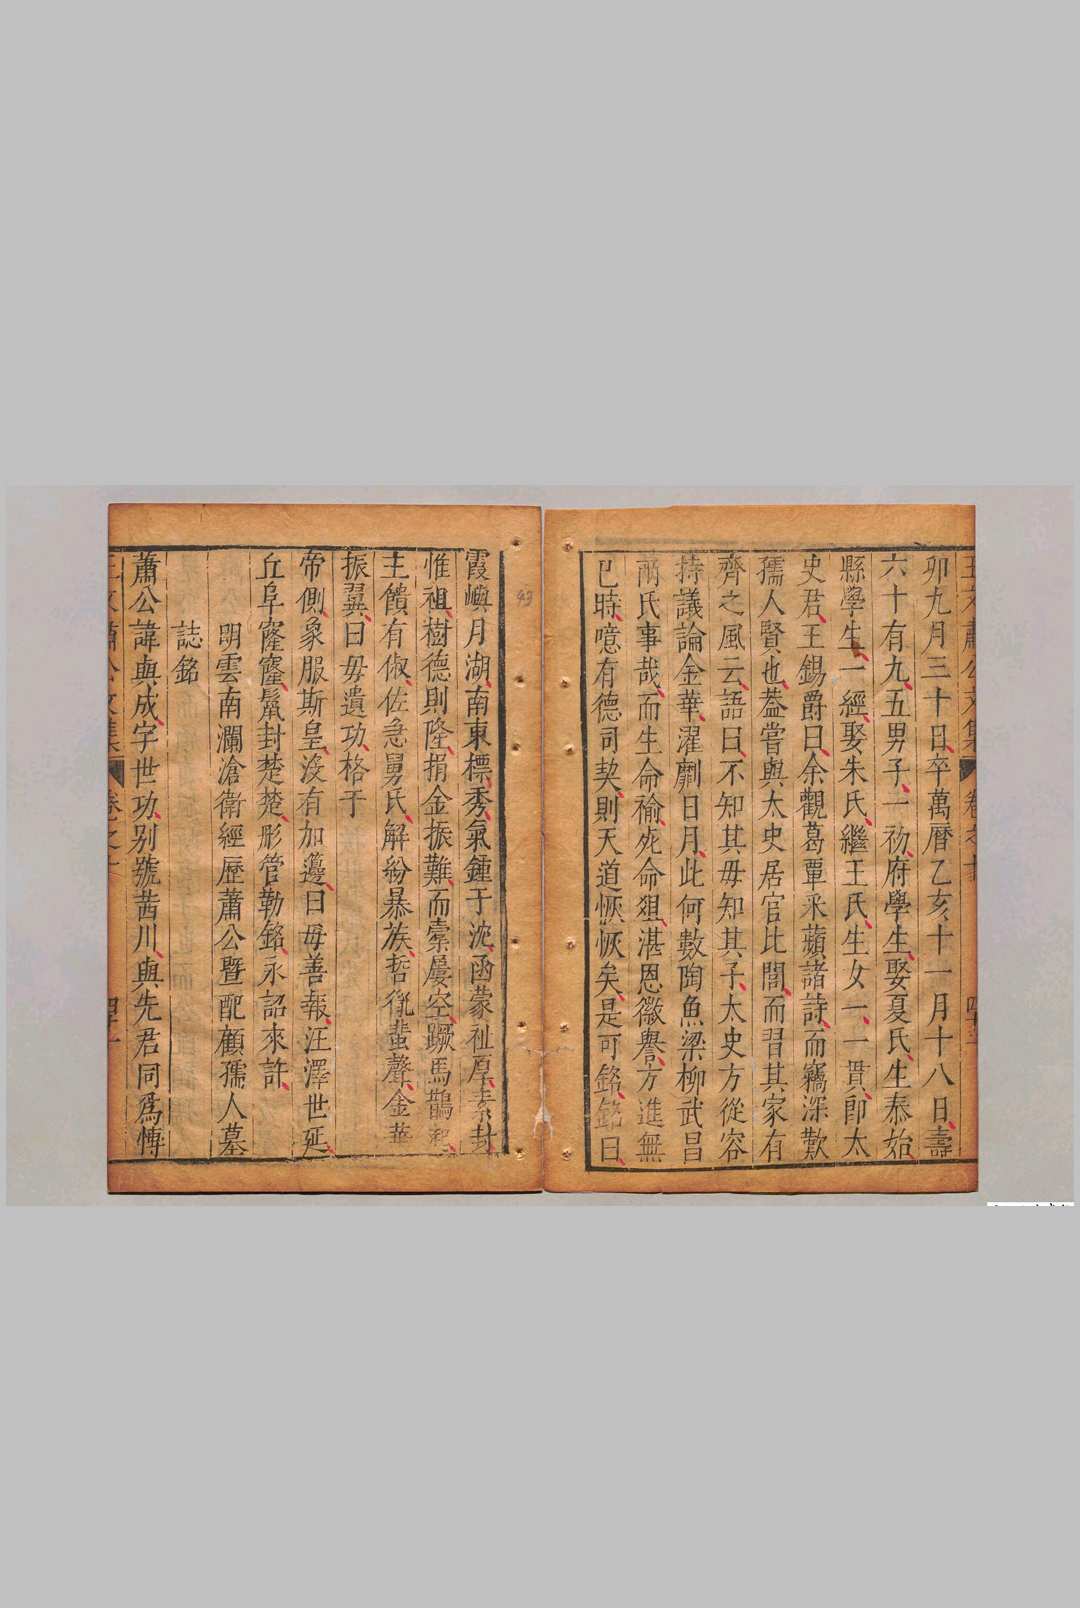 卯九月三十日卒萬曆乙亥十一月十八日壽
六十有九五男子一礽府學生娶夏氏生泰始
縣學生一經娶朱氏繼王氏生女一一貫即太
史君王錫爵曰余觀葛覃采蘋諸詩而竊深歎
孺人賢也葢嘗與太史居官比閭而習其家有
齊之風云語曰不知其毋知其子太史方從容
持議論金華濯劘日月此何數陶魚梁柳武昌
兩氏事哉而生命褕死命爼湛恩徽譽方進無
已時噫有德司契則天道恢恢矣是可銘銘曰
霞嶼月湖南東標秀氣鍾于沈函蒙祉厚素封
惟祖樹德則隆捐金振難而橐屢空蹶馬鵲起
主饋有俶佐急舅氏解紛暴族哲徿蜚聲金華
振翼曰毋遺功格于
帝側象服斯皇沒有加籩曰毋善報汪澤世延
丘阜窿窿鬣封楚楚彤管勒銘永詔來許
明雲南瀾滄衛經歷蕭公暨配顧孺人墓
誌銘
蕭公諱與成字世功别號茜川與先君同爲慱